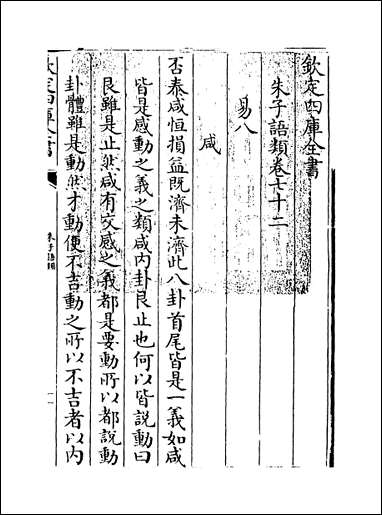 欽定四庫全書
朱子語類卷七十二
易八
咸
否泰咸恒損益既濟未濟此八卦首尾皆是一義如咸
皆是感動之義之類咸内卦艮止也何以皆說動曰
艮雖是止然咸有交感之義都是要動所以都說動
卦體雖是動然才動便不吉動之所以不吉者以内
欽定四庫全書
朱子語類